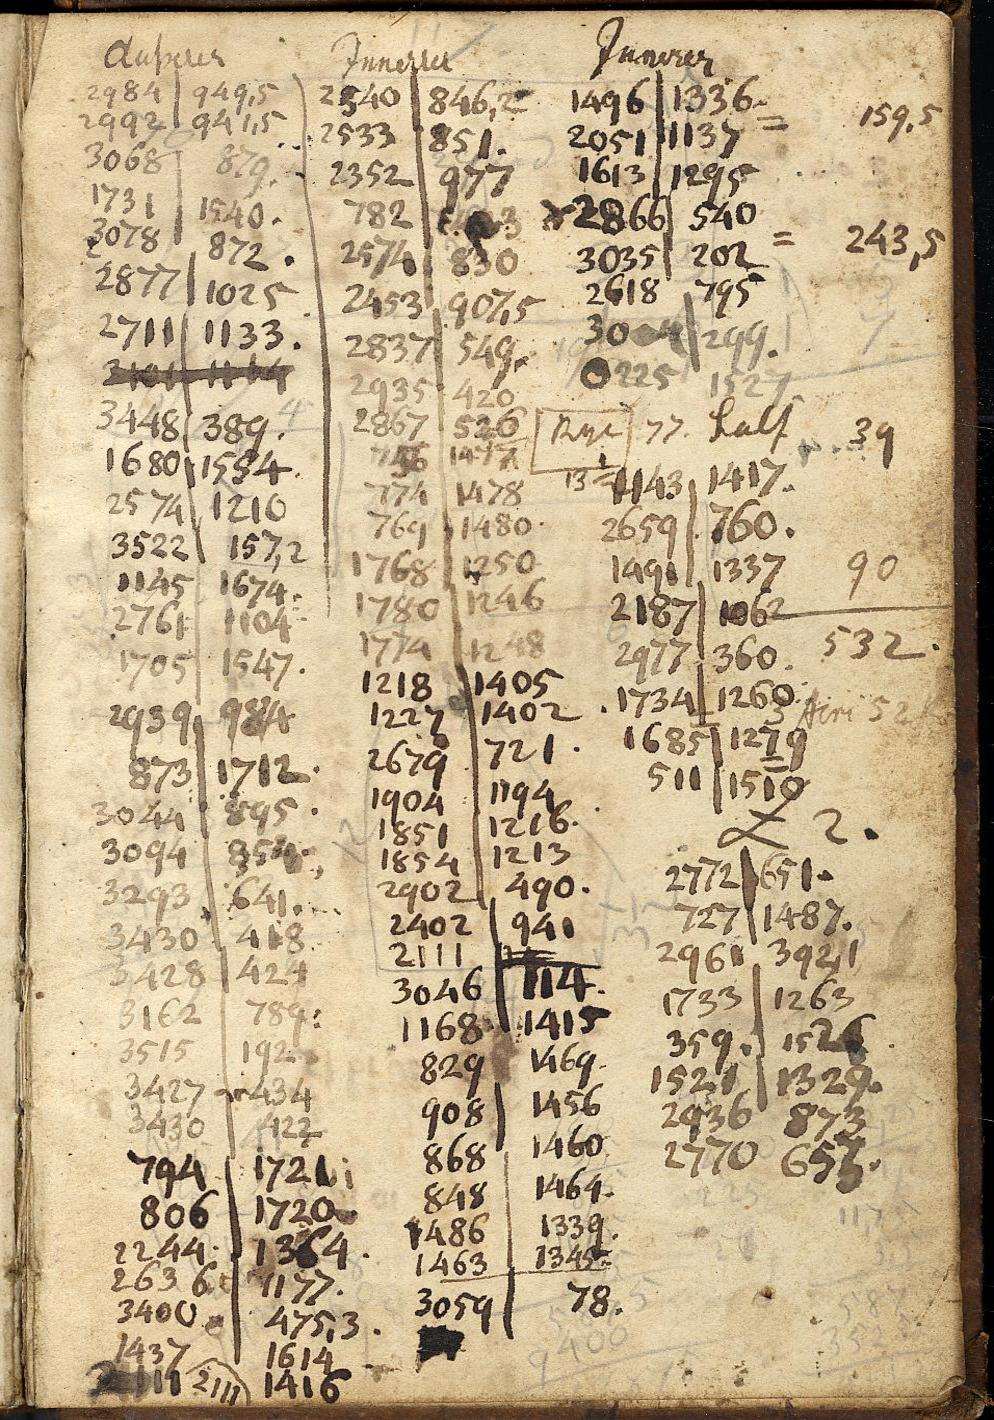 2984 949,5
2992 941,5
3068 879.
1731 1540.
3078 872.
2877 1025
2711 1133.
3448 389.
1680 1554.
2574 1210
3522 157,2
1145 1674.
2761 1104
1705 1547.
2939 984
873 1712.
3044 895.
3094
3293 641.
3430 418
3428 424
3162 789.
3515 192
3427 434
3430 422
794 1721
806 1720
2244 1364.
2636 1177.
3400 475,3.
1437 1614
2111 1416
Innerer
2540 846,2
2533 851.
2352 977
782
2574 830
2453 907,5
2837 549.
2935 420
2867 526
1477
774 1478
769 1480.
1768 1250
1780 1246
1774 1248
1218 1405
1227 1402
2679 721.
1904 1194
1851 1216.
1854 1213
2902 490.
2402 941
2111
3046 114.
1168 1415
829 1469.
908 1456
868 1460
848 1464.
1486 1339.
1463 1345
3059 78.
Innerer
1496 1336 = 159,5
2051 1137
1613 1295
2866 540 = 243,5
3035 202
2618 795
299.
0225 1527
77. half 39
1143 1417.
2659 760.
1491 1337 90
2187 1062
2977 360. 532.
1734 1260
1685 1279
511 1510
2.
2772 651.
727 1487.
2961 392,1
1733 1263
359. 1526
1521 1329.
2936 873
2770 653.